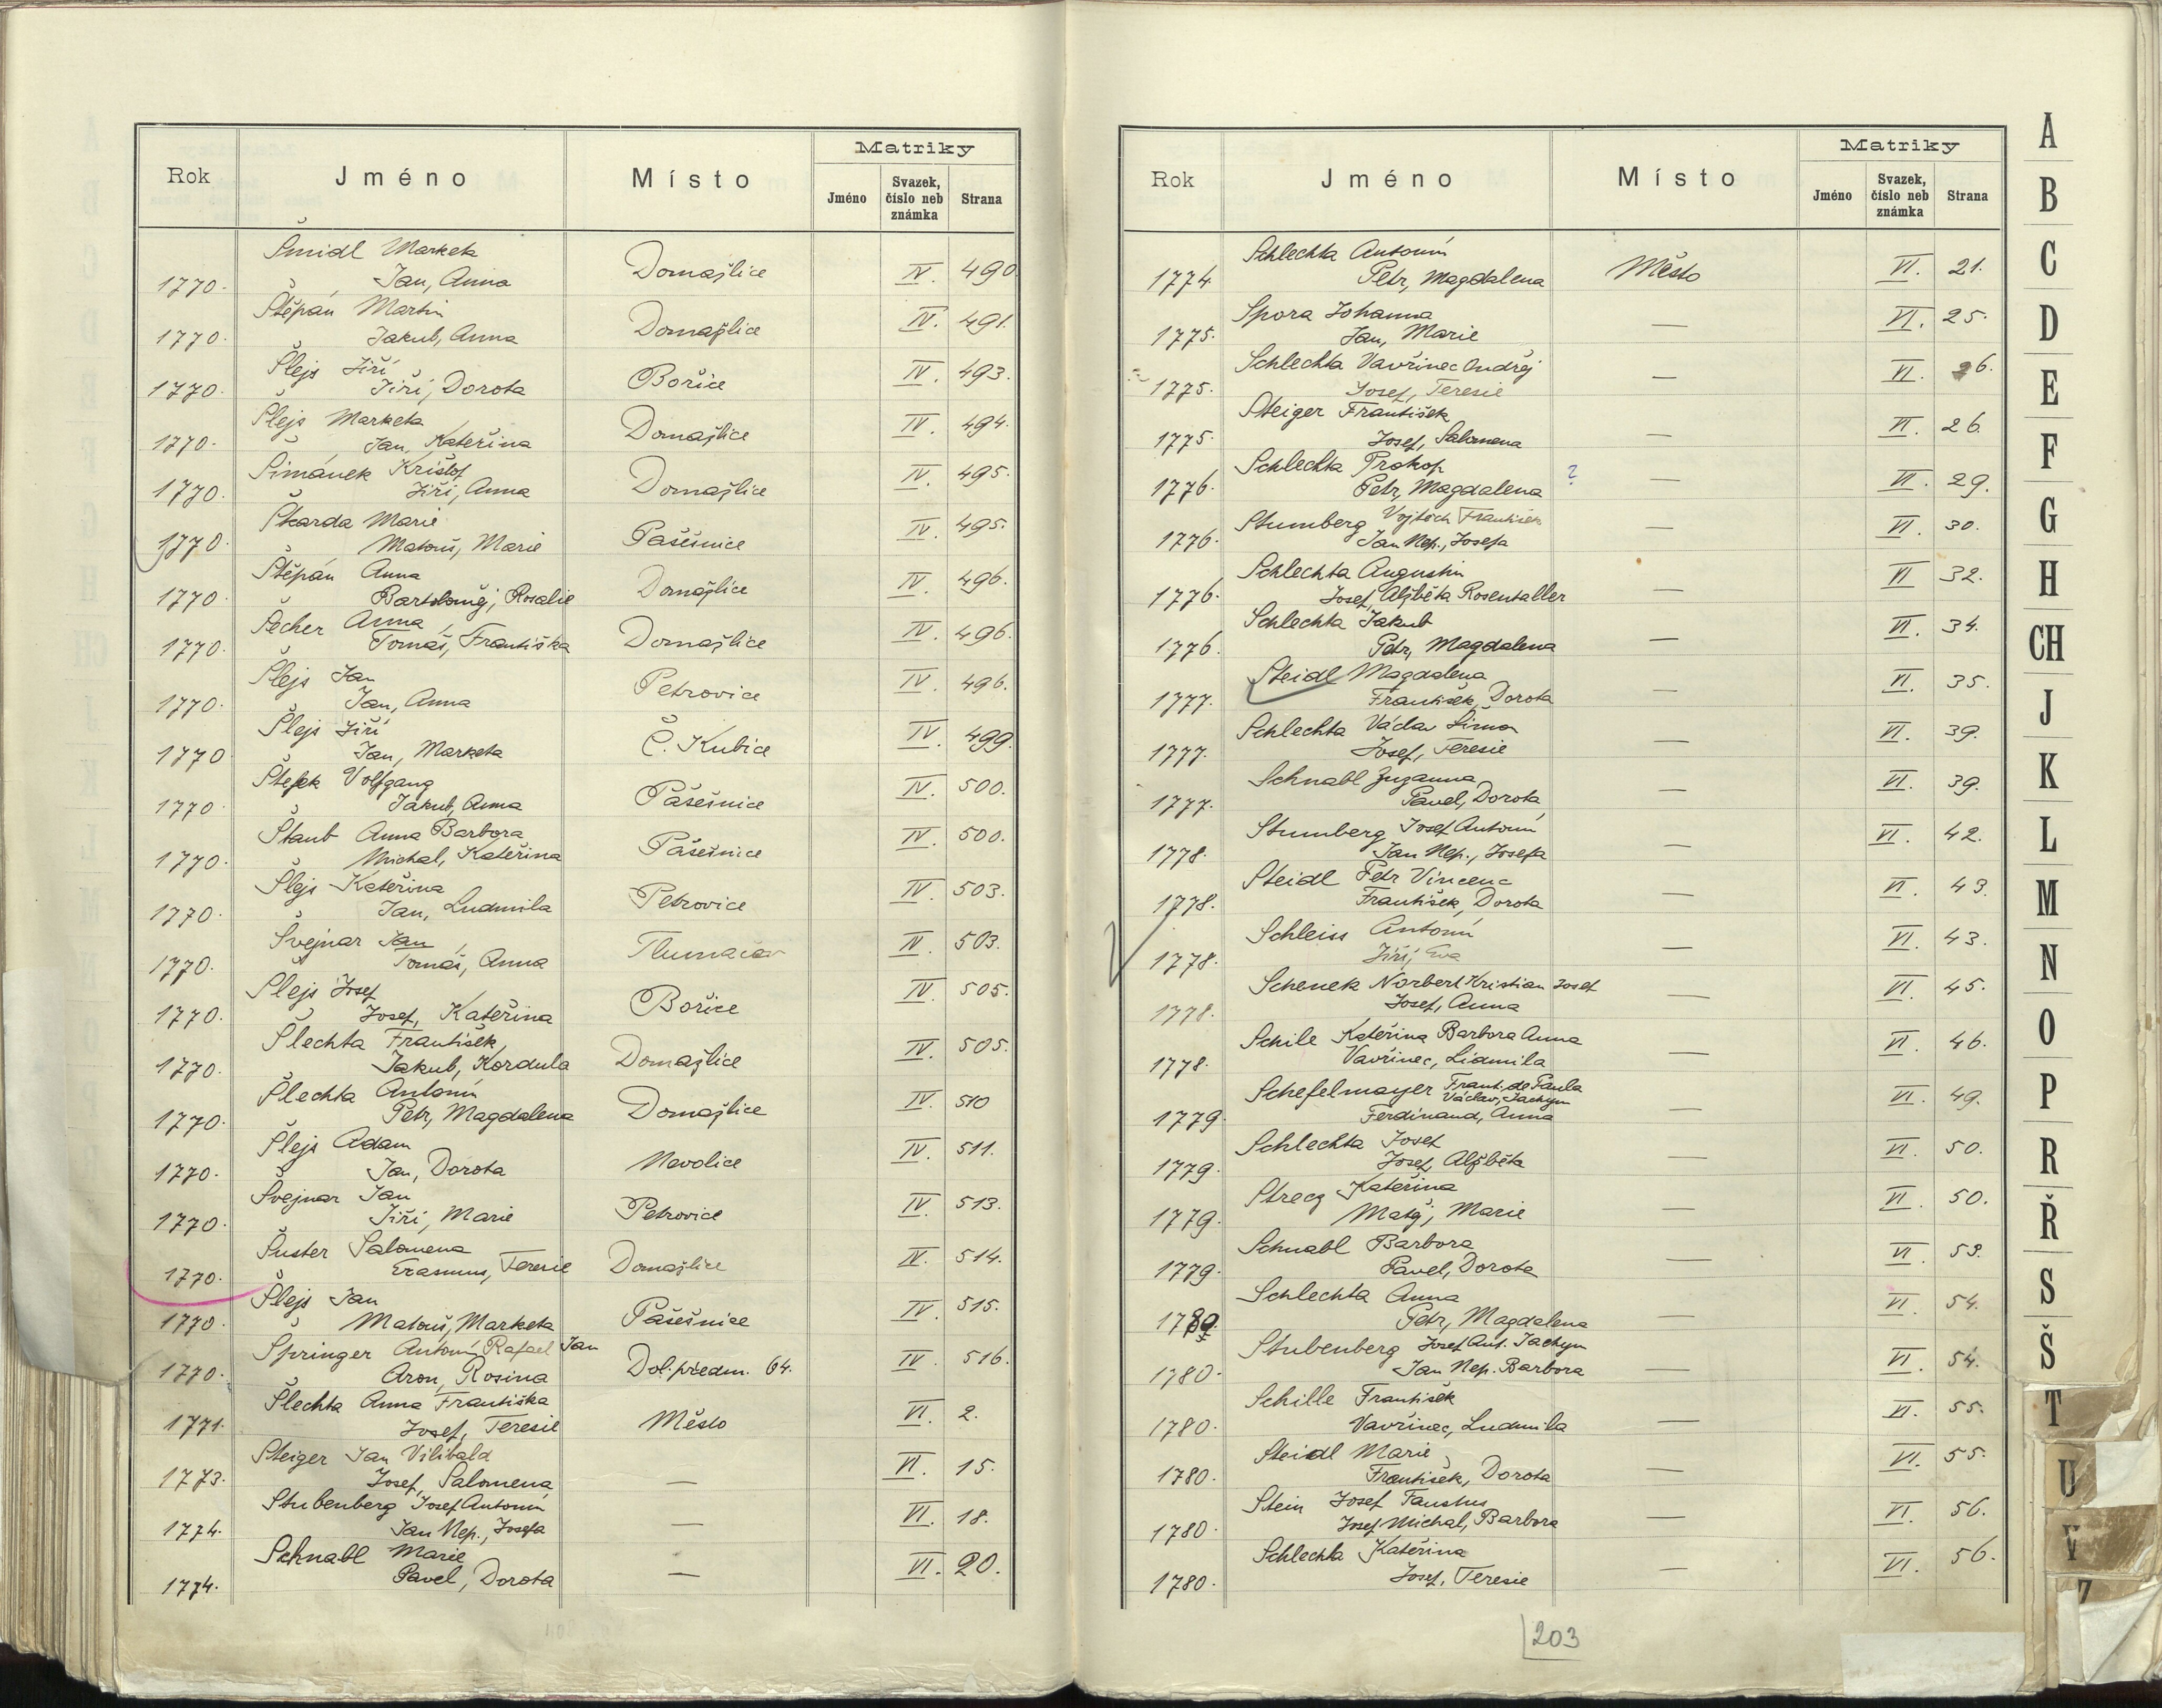 Matriky
Rok Jméno Místo Jméno Svazek, číslo neb známka Strana
Šmidl Marketa
1770. Jan, Anna Domažlice IV. 490
Štěpán Martin
1770. Jakub, Anna Domažlice IV. 491.
Šlejs Jiří
1770. Jiří, Dorota Bořice IV. 493.
Šlejs Marketa
1770. Jan, Kateřina Domažlice IV. 494.
Šimánek Krištof
1770. Jiří, Anna Domažlice IV. 495.
Škarda Marie
1770. Matouš, Marie Pašešnice IV. 495.
Štěpán Anna
1770. Bartoloměj, Rosalie Domažlice IV. 496.
Šecher Anna
1770. Tomáš, Františka Domažlice IV. 496.
Šlejs Jan
1770. Jan, Anna Petrovice IV. 496.
Šlejs Jiří
1770 Jan, Marketa Č. Kubice IV. 499.
Štefek Volfgang
1770. Jakub, Anna Pašešnice IV. 500.
Štaub Anna Barbora
1770. Michal, Kateřina Pašešnice IV. 500.
Šlejs Kateřina
1770. Jan, Ludmila Petrovice IV. 503.
Švejnar Jan
1770. Tomáš, Anna Tlumačov IV. 503.
Šlejs Josef
1770. Josef, Kateřina Bořice IV. 505.
Šlechta František
1770. Jakub, Kordula Domažlice IV. 505.
Šlechta Antonín
1770. Petr, Magdalena Domažlice IV. 510
Šlejs Adam
1770. Jan, Dorota Nevolice IV. 511.
Švejnar Jan
1770. Jiří, Marie Petrovice IV. 513.
Šuster Salomena
1770. Erasmus, Teresie Domažlice IV. 514.
Šlejs Jan
1770. Matouš, Marketa Pašešnice IV. 515.
Springer Antonín Rafael Jan
1770. Aron, Rosina Dol. předm. 64. IV. 516.
Šlechta Anna Františka
1771. Josef, Teresie Město VI. 2.
Steiger Jan Vilibald
1773. Josef, Salomena — VI. 15.
Stubenberg Josef Antonín
1774. Jan Nep., Josefa — VI. 18.
Schnabl Marie
1774. Pavel, Dorota — VI. 20.
Matriky
Rok Jméno Místo Jméno Svazek, číslo neb známka Strana
Schlechta Antonín
1774 Petr, Magdalena Město VI. 21.
Spora Johanna
1775. Jan, Marie — VI. 25.
Schlechta Vavřinec Ondřej
1775. Josef, Teresie — VI. 26.
Steiger František
1775. Josef, Salomena — VI. 26.
Schlechta Prokop
1776. Petr, Magdalena ? — VI. 29.
Stumberg Vojtěch František
1776. Jan Nep., Josefa — VI. 30.
Schlechta Augustin
1776. Josef, Alžběta Rosentaller — VI 32.
Schlechta Jakub
1776. Petr, Magdalena — VI. 34.
Steidl Magdalena
1777. František, Dorota — VI. 35.
Schlechta Václav Šimon
1777. Josef, Teresie — VI. 39.
Schnabl Zuzanna
1777. Pavel, Dorota — VI. 39.
Stumberg Josef Antonín
1778. Jan Nep., Josefa — VI. 42.
Steidl Petr Vincenc
1778. František, Dorota — VI. 43.
Schleiss Antonín
1778. Jiří, Eva — VI. 43.
Schenek Norbert Kristian Josef
1778. Josef, Anna — VI. 45.
Schile Kateřina Barbora Anna
1778. Vavřinec, Lidmila — VI. 46.
Schefelmayer Frant. de Paula
Václav, Jachym
1779. Ferdinand, Anna — VI. 49.
Schlechta Josef
1779. Josef, Alžběta — VI. 50.
Strecz Kateřina
1779. Matěj, Marie — VI. 50.
Schnabl Barbora
1779. Pavel, Dorota — VI. 53.
Schlechta Anna
Petr, Magdalena — VI. 54.
Stubenberg Josef Ant. Jachym
1780. Jan Nep. Barbora — VI. 54.
Schille František
1780. Vavřinec, Ludmila — VI. 55.
Steidl Marie
1780. František, Dorota — VI. 55.
Stein Josef Faustus
1780. Josef Michal, Barbora — VI. 56.
Schlechta Kateřina
1780. Josef, Teresie — VI. 56.
203
A
B
C
D
E
F
G
H
CH
J
K
L
M
N
O
P
R
Ř
S
Š
T
U
V